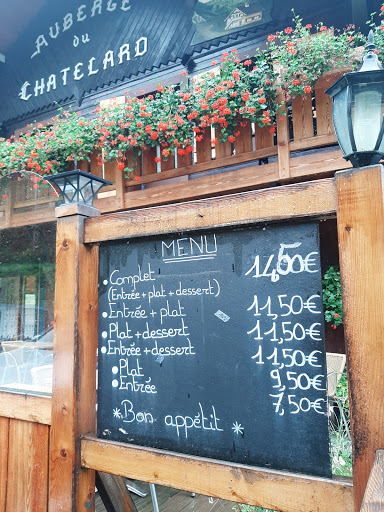 AUBERGE
DU
CHATELARD
MENU
• Complet 14,50€
(Entrée + plat + dessert)
• Entrée + plat 11,50€
• Plat + dessert 11,50€
• Entrée + dessert 11,50€
• Plat 9,50€
• Entrée 7,50€
* Bon appétit *